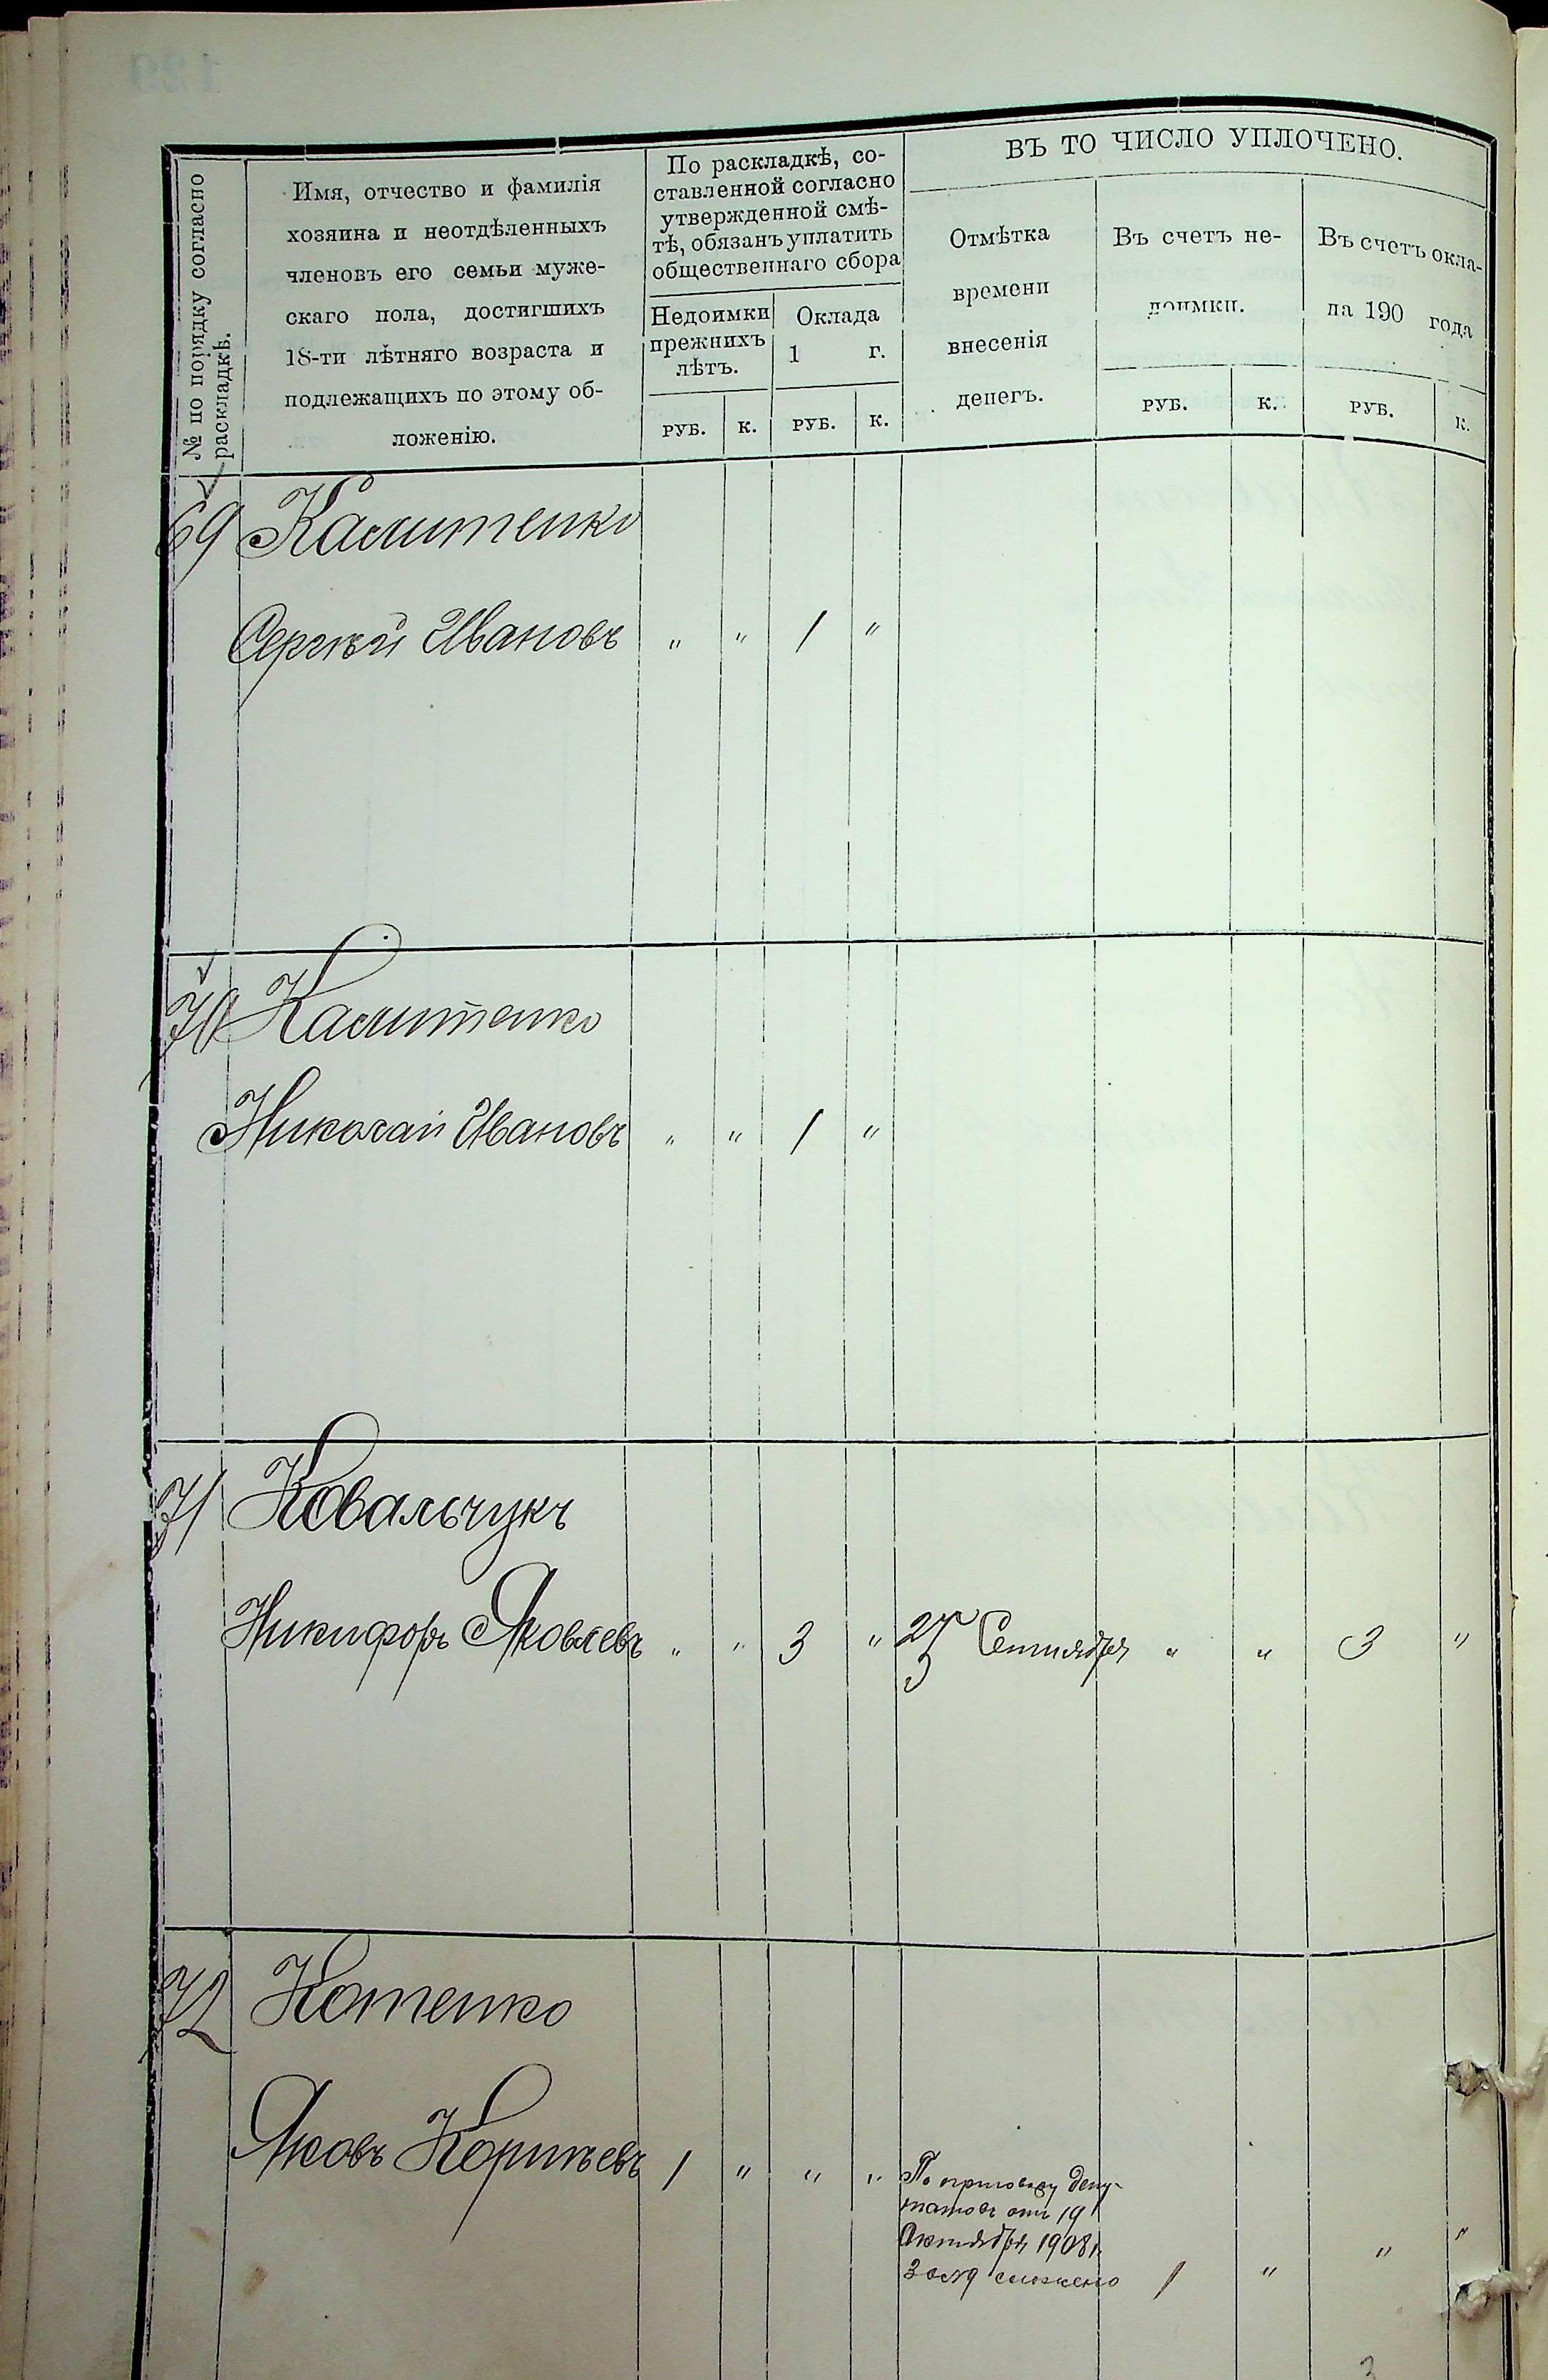 № по порядку согласно
раскладкѣ.
Имя, отчество и фамилія
хозяина и неотдѣленныхъ
членовъ его семьи муже-
скаго пола, достигшихъ
18-ти лѣтняго возраста и
подлежащихъ по этому об-
ложенію.
По раскладкѣ, со-
ставленной согласно
утвержденной смѣ-
тѣ, обязанъ уплатить
общественнаго сбора
Недоимки
прежнихъ
лѣтъ.
Оклада
1 г.
РУБ. К. РУБ. К.
ВЪ ТО ЧИСЛО УПЛОЧЕНО.
Отмѣтка
времени
внесенія
денегъ.
Въ счетъ не-
доимки.
Въ счетъ окла-
на 190 года
РУБ. К. РУБ. К.
69 Калитенко
Сергѣй Ивановъ " " 1 "
70 Калитенко
Николай Ивановъ " " 1 "
71 Ковальчукъ
Никифоръ Яковлевъ " " 3 " 25 Сентября " " 3 "
72 Котенко
Яковъ Корнѣевъ 1 " " "
По приговору депу-
татовъ отъ 19
Октября 1908 г.
за № 9 сложено 1 " " "
3